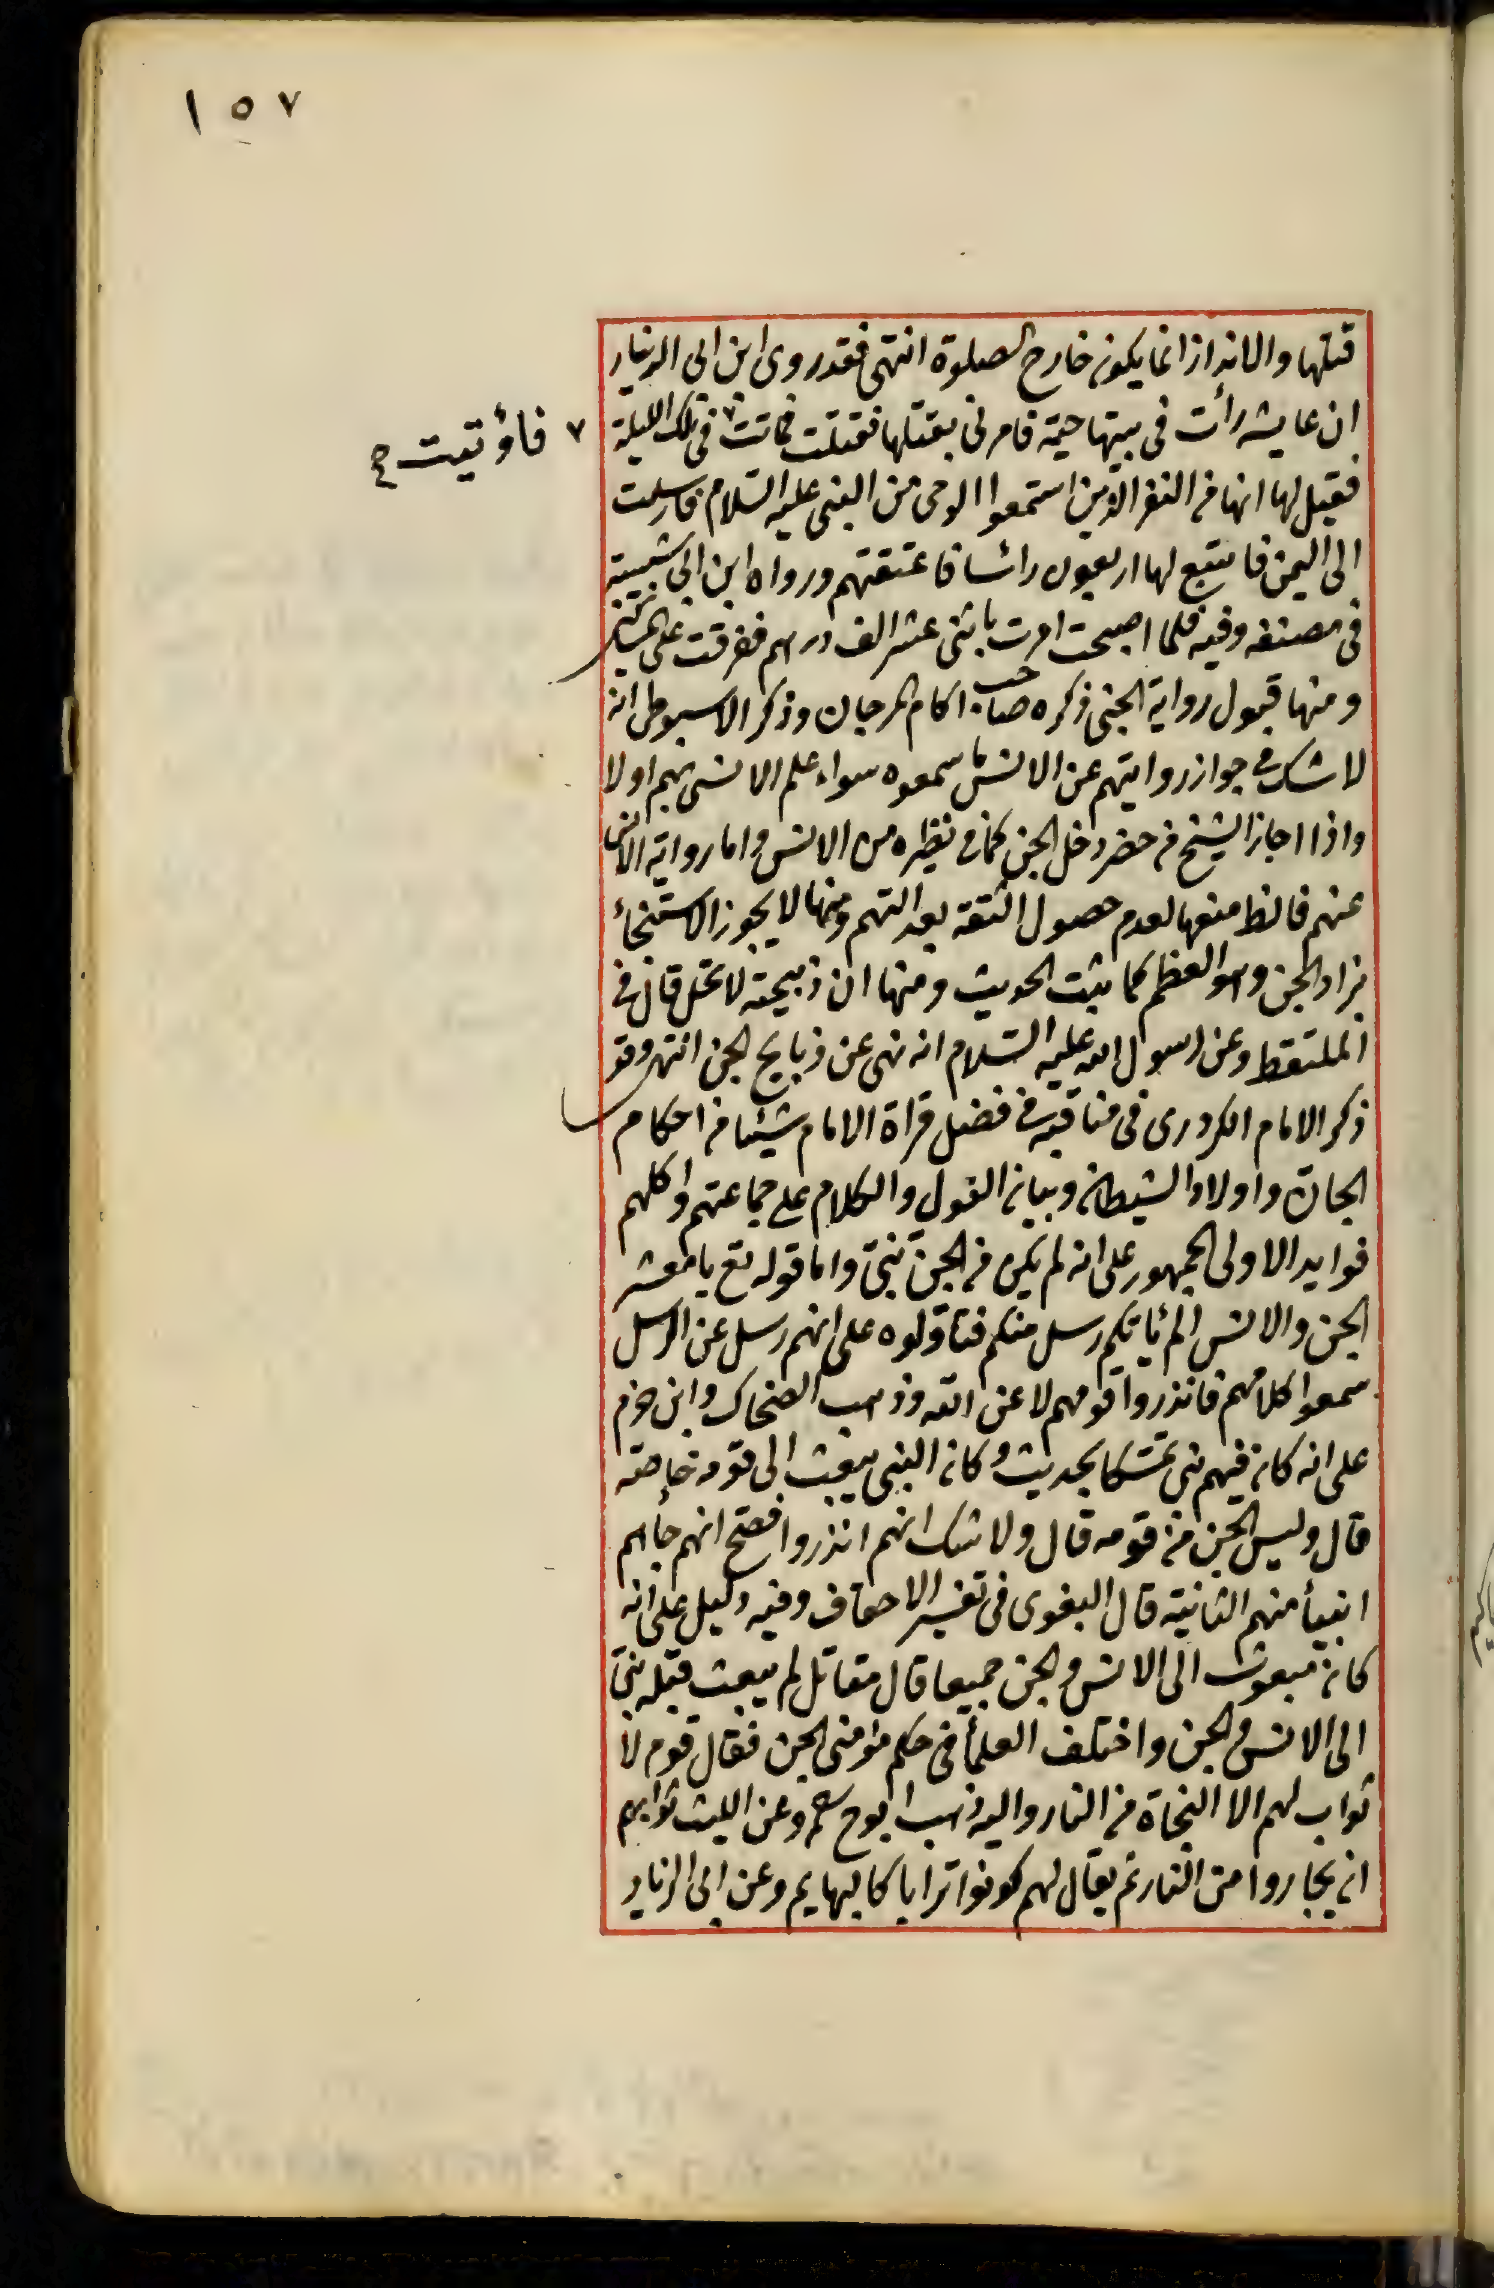 ١٥٧
قتلها والانذار انما يكون خارج الصلوة انتهى فقد روى ابن ابى الدنيا
ان عايشه رأت فى بيتها حية فامرنى بقتلها فقتلت فماتت٧ فى تلك الليلة
٧ فاؤتيت ح
فقيل لها انها من النفر الذين استمعوا الوحى من النبى عليه السلام فارسلت
الى اليمن فابتيع لها اربعون رأسا فاعتقتهم ورواه ابن ابى شيبة
فى مصنفه وفيه فلما اصبحت امرت باثنى عشر الف درهم ففرقت على المساكين
ومنها قبول رواية الجنى ذكره صاحب اكام المرجان وذكر الاسيوطى انه
لا شك فى جواز روايتهم عن الانس ما سمعوه سواء علم الانسى بهم او لا
واذا اجاز الشيخ من حضر دخل الجن كما فى نظيره من الانس واما رواية الانس
عنهم فالظ منعها لعدم حصول الثقة بعدالتهم ومنها لا يجوز الاستنجاء
بزاد الجن وهو العظم كما ثبت الحديث ومنها ان ذبيحته لا تحل قال فى
الملتقط وعن رسول الله عليه السلام انه نهى عن ذبايح الجن انتهى وقد
ذكر الامام الكردرى فى مناقبه فى فضل قراة الامام شيئا من احكام
الجان واولاد الشيطان وبيان الغول والكلام على جماعتهم واكلهم
فوايد الاولى الجمهور على انه لم يكن من الجن نبى واما قوله تع يا معشر
الجن والانس الم يأتكم رسل منكم فتأولوه على انهم رسل عن الرسل
سمعوا كلامهم فانذروا قومهم لا عن الله وذهب الضحاك وابن حزم
على انه كان فيهم نبى تمسكا بحديث وكان النبى يبعث الى قومه خاصة
قال وليس الجن من قومه قال ولا شك انهم انذروا فصح انهم جاءهم
انبيأ منهم الثانية قال البغوى فى تفسير الاحقاف وفيه دليل على انه
كان مبعوث الى الانس والجن جميعا قال مقاتل لم يبعث قبله نبى
الى الانس والجن واختلف العلمأ فى حكم مؤمنى الجن فقال قوم لا
ثواب لهم الا النجاة من النار واليه ذهب ابوح رحمه وعن الليث ثوابهم
ان يجاروا من النار ثم يقال لهم كونوا ترابا كالبهايم وعن ابى الزناد